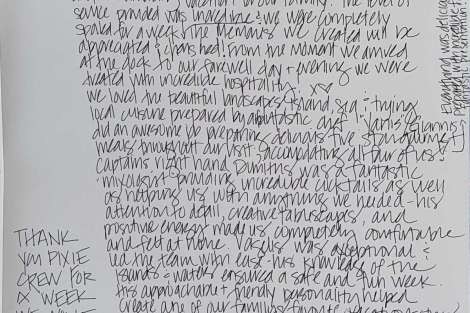 vacation for our family. The level of
service provided was incredible & we were completely
spoiled for a week! The memories we created will be
appreciated & cherished! From the moment we arrived
at the dock to our farewell day & evening we were
treated with incredible hospitality.
We loved the beautiful landscapes, island, sea & trying
local cuisine prepared by a fantastic chef "Yanis" Giannis
did an awesome job preparing delicious five star gourmet
meals throughout our visit, accomodating all four of us!
Captains right hand Dimitris was a fantastic
mixologist providing incredible cocktails as well
as helping us with anything we needed - his
attention to detail, creative tablescapes, and
positive energy made us completely comfortable
and felt at home. Vasilis was exceptional &
led the team with ease - his knowledge of the
islands & waters ensured a safe and fun week.
His approachable & friendly personality helped
create one of our families favorite vacations
THANK
YOU PIXIE
CREW FOR
A WEEK
Everything was
prepared with incredible
presentation